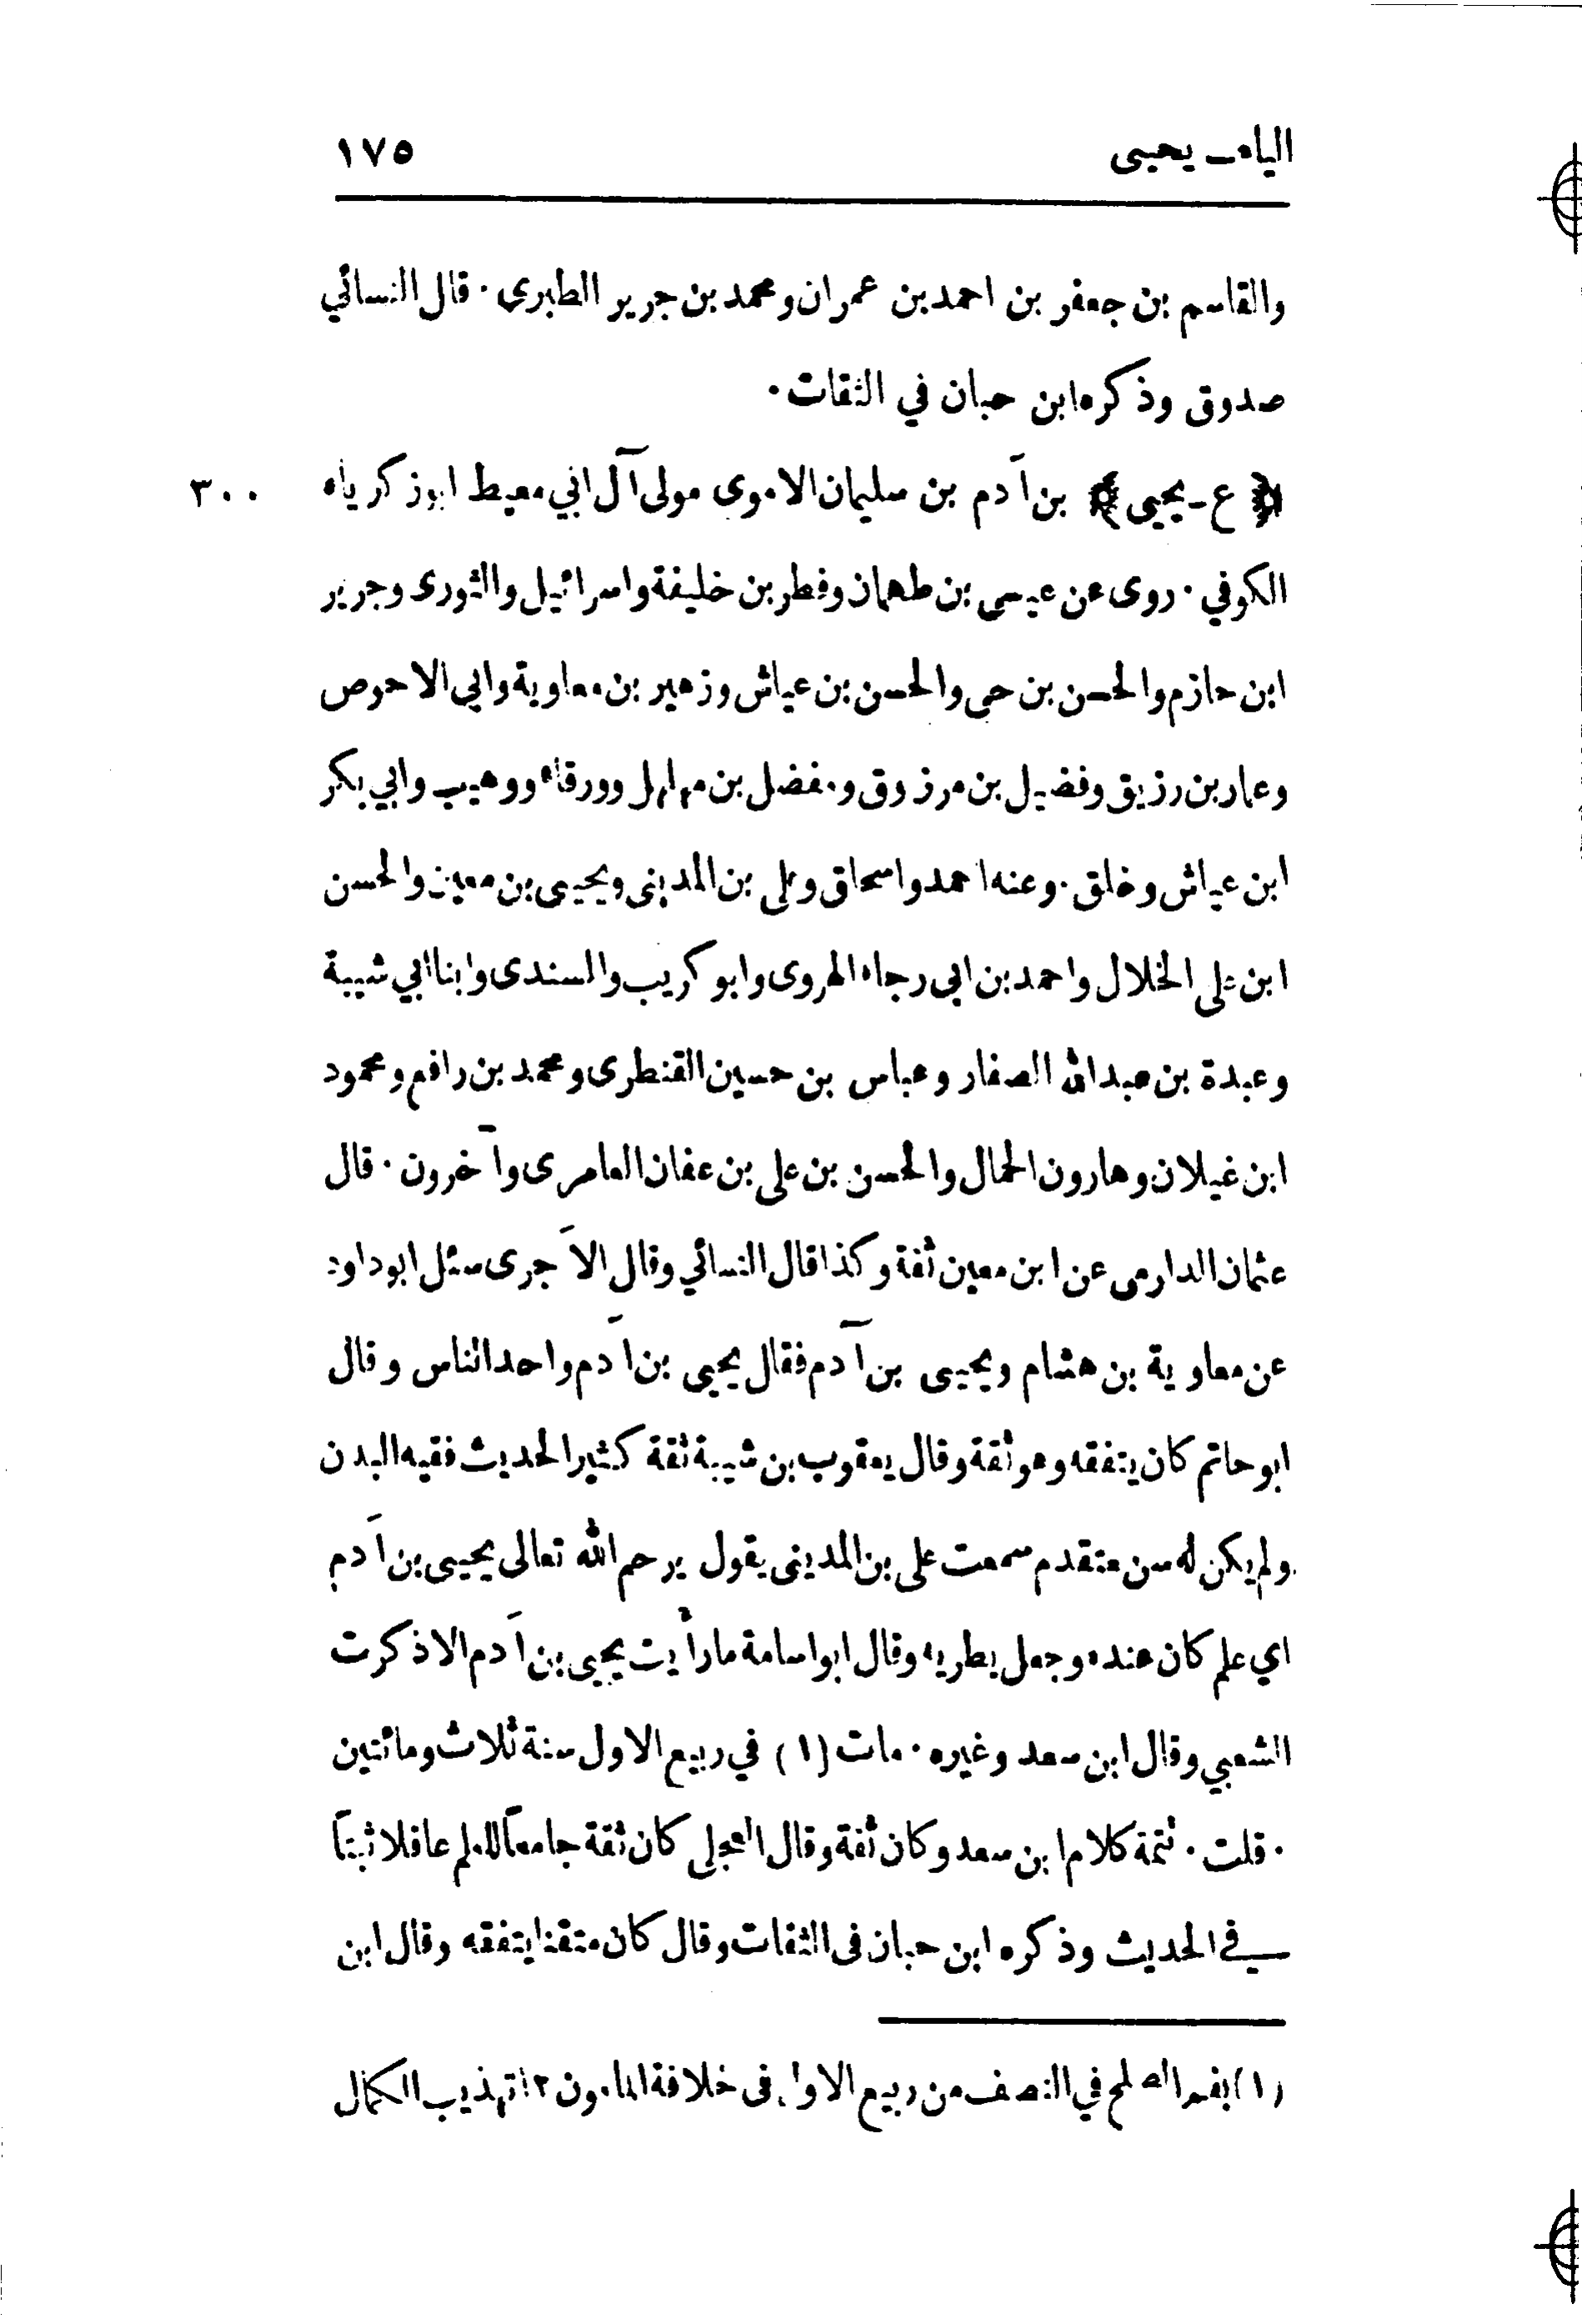 الياء ـ يحيى ١٧٥
والقاسم بن جعفر بن احمد بن عمران ومحمد بن جرير الطبرى ٠ قال النسائي
صدوق وذكره ابن حبان في الثقات ٠
﴿ ع ـ يحيى ﴾ بن آدم بن سليمان الاموى مولى آل ابي معيط ابو زكرياء ٣٠٠
الكوفي ٠ روى عن عيسى بن طهمان وفطر بن خليفة واسرائيل والثورى وجرير
ابن حازم والحسن بن حى والحسن بن عياش وزهير بن معاوية وابي الاحوص
وعمار بن رزيق وفضيل بن مرزوق ومفضل بن مهلهل وورقاء ووهيب وابي بكر
ابن عياش وخلق ٠ وعنه احمد واسحاق وعلى بن المدينى ويحيى بن معين والحسن
ابن على الخلال واحمد بن ابى رجاء الهروى وابو كريب والسندى وابنا ابي شيبة
وعبدة بن عبد الله الصفار وعباس بن حسين القنطرى ومحمد بن رافع ومحمود
ابن غيلان وهارون الحمال والحسن بن على بن عفان العامرى وآخرون ٠ قال
عثمان الدارمى عن ابن معين ثقة وكذا قال النسائي وقال الآجرى سئل ابو داود
عن معاوية بن هشام ويحيى بن آدم فقال يحيى بن آدم واحد الناس وقال
ابو حاتم كان يتفقه وهو ثقة وقال يعقوب بن شيبة ثقة كثير الحديث فقيه البدن
ولم يكن له سن متقدم سمعت على بن المدينى يقول يرحم الله تعالى يحيى بن آدم
اي علم كان عنده وجعل يطريه وقال ابو اسامة ما رأيت يحيى بن آدم الا ذكرت
الشعبي وقال ابن سعد وغيره ٠ مات (١) في ربيع الاول سنة ثلاث ومائتين
٠ قلت ٠ تتمة كلام ابن سعد وكان ثقة وقال العجلى كان ثقة جامعاً للعلم عاقلا ثبتاً
في الحديث وذكره ابن حبان فى الثقات وقال كان متقنا يتفقه وقال ابن
(١) بفم الصلح في النصف من ربيع الاول فى خلافة المامون ١٢ تهذيب الكمال